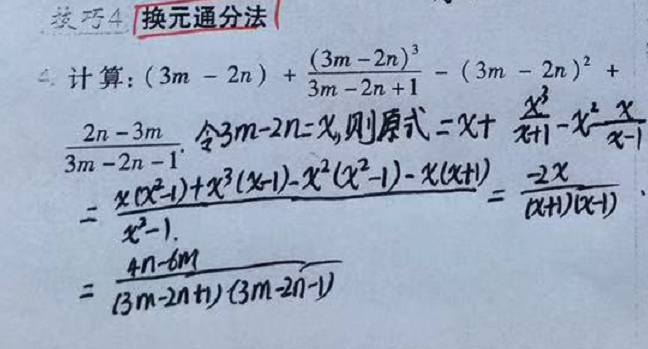 技巧4 换元通分法
4. 计算：(3m － 2n) ＋ \frac{(3m－2n)^3}{3m－2n＋1} － (3m － 2n)^2 ＋
\frac{2n－3m}{3m－2n－1}. 令3m-2n=x,则原式=x+\frac{x^3}{x+1}-x^2-\frac{x}{x-1}
=\frac{x(x^2-1)+x^3(x-1)-x^2(x^2-1)-x(x+1)}{x^2-1.}=\frac{-2x}{(x+1)(x-1)}.
=\frac{4n-6m}{(3m-2n+1)(3m-2n-1)}